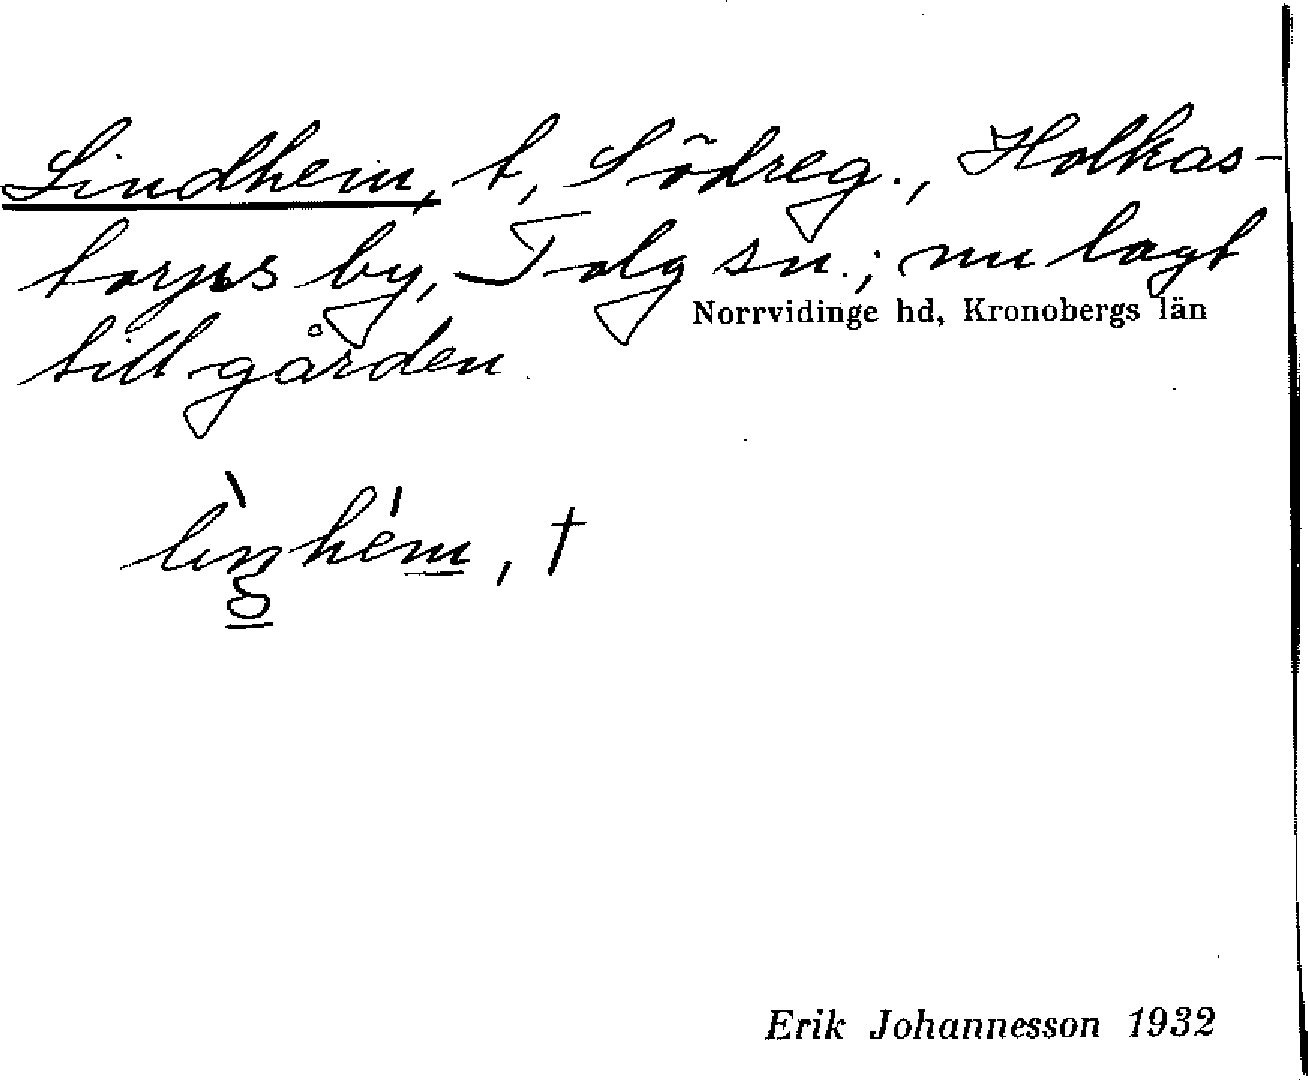 Lindhem, t, Södreg., Holkas-
torps by, Tolg sn.; nu lagt
Norrvidinge hd, Kronobergs län
till gården
Erik Johannesson 1932